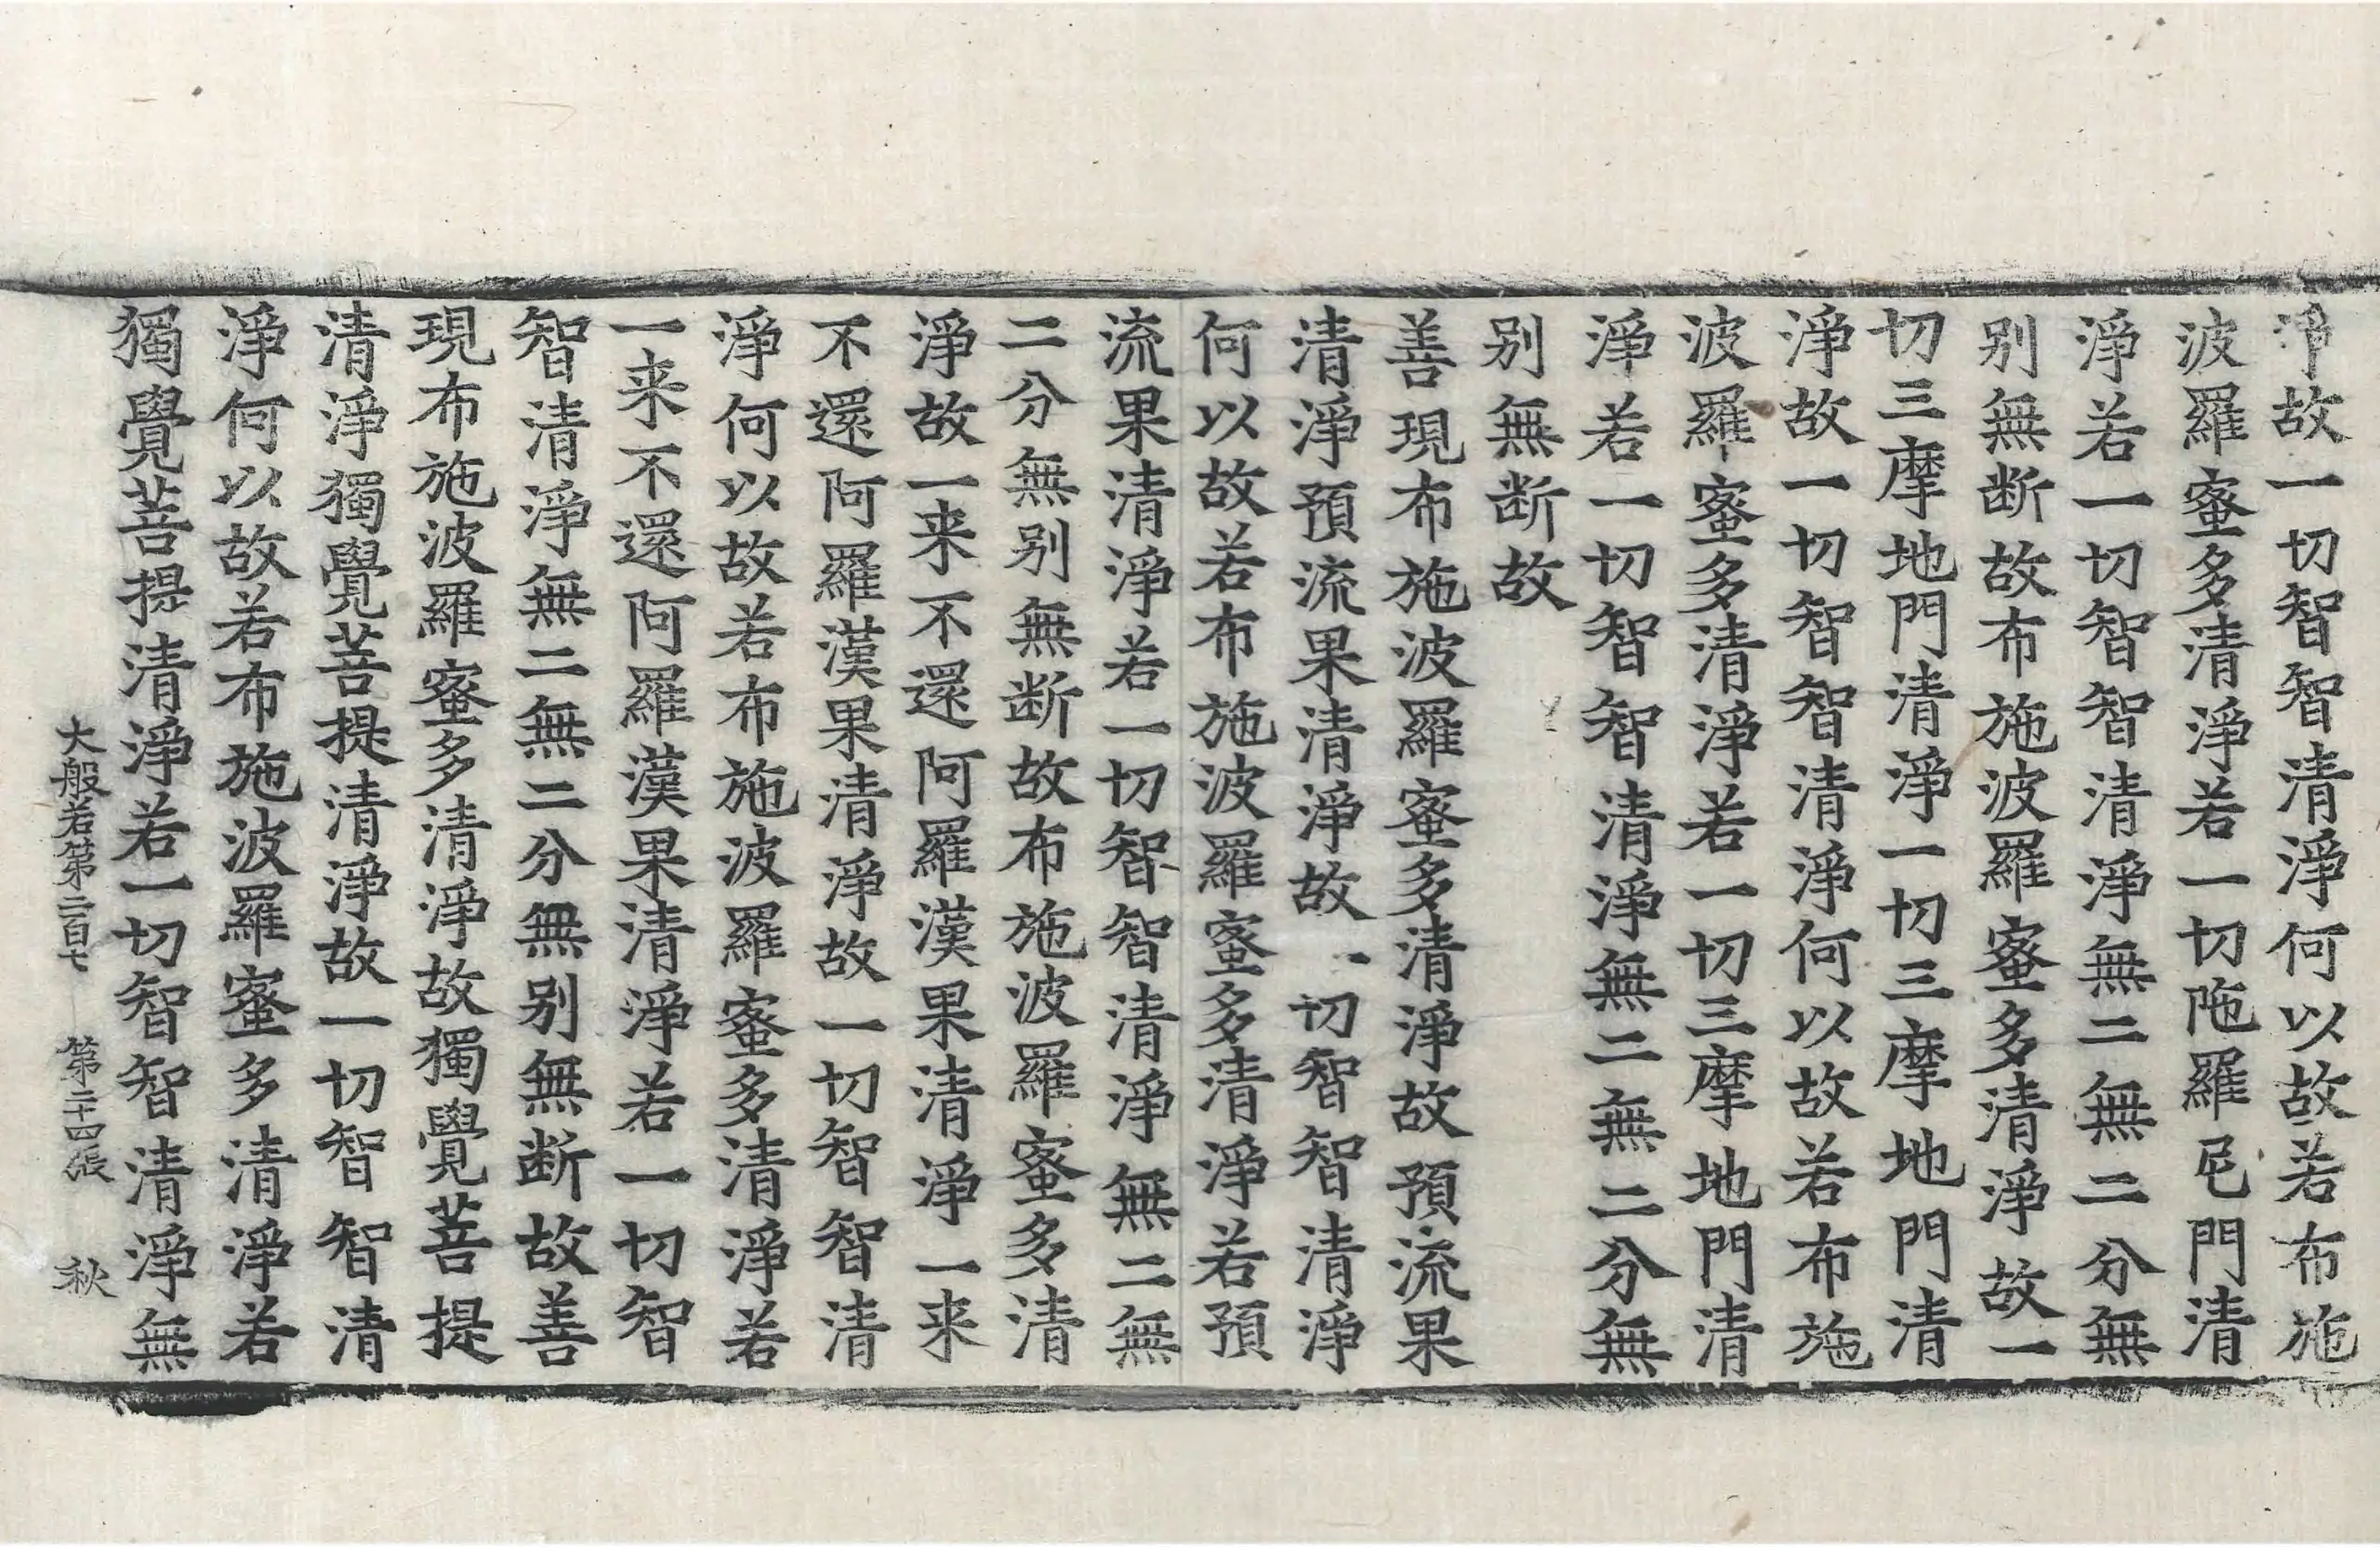 淨故一切智智清淨何以故若布施
波羅蜜多清淨若一切陁羅尼門清
淨若一切智智清淨無二無二分無
別無断故布施波羅蜜多清淨故一
切三摩地門清淨一切三摩地門清
淨故一切智智清淨何以故若布施
波羅蜜多清淨若一切三摩地門清
淨若一切智智清淨無二無二分無
別無断故
善現布施波羅蜜多清淨故預流果
清淨預流果清淨故一切智智清淨
何以故若布施波羅蜜多清淨若預
流果清淨若一切智智清淨無二無
二分無別無断故布施波羅蜜多清
淨故一来不還阿羅漢果清淨一来
不還阿羅漢果清淨故一切智智清
淨何以故若布施波羅蜜多清淨若
一来不還阿羅漢果清淨若一切智
智清淨無二無二分無別無断故善
現布施波羅蜜多清淨故獨覺菩提
清淨獨覺菩提清淨故一切智智清
淨何以故若布施波羅蜜多清淨若
獨覺菩提清淨若一切智智清淨無
大般若第二百七 第二十四張 秋